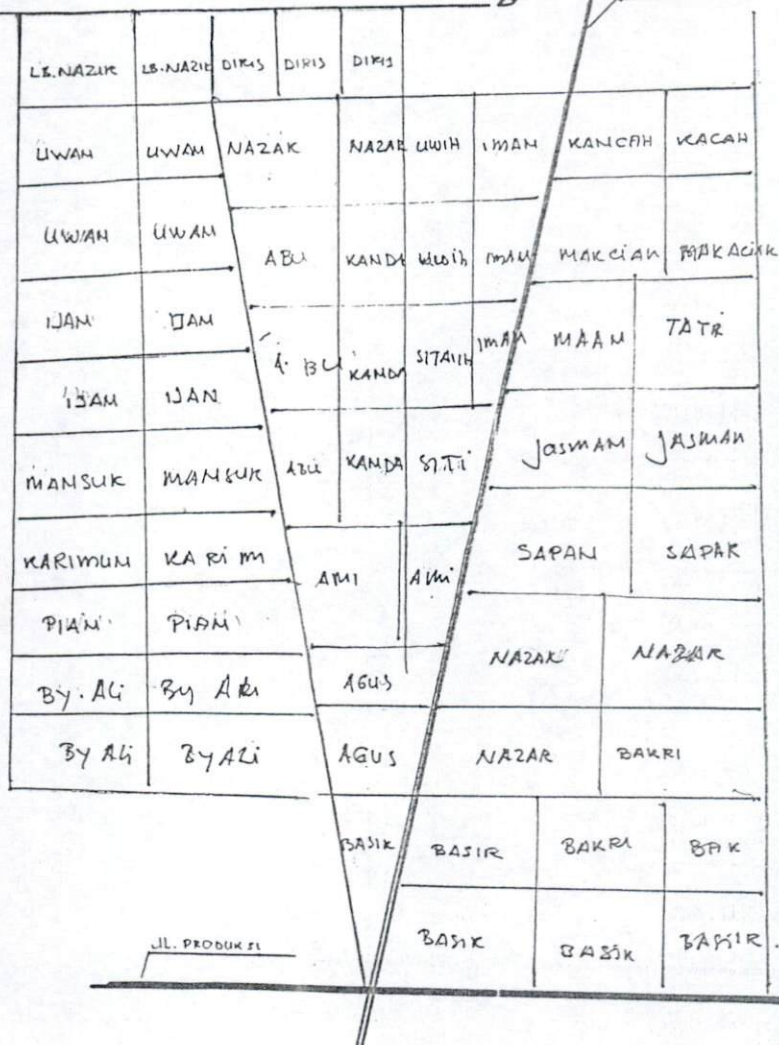 LB.NAZIR LB.NAZIR DIRIS DIRIS DIRIS
UWAN UWAM NAZAK NAZAR UWIH IMAN KANCAH KACAH
UWAN UWAM ABU KANDA UWIH IMAN MAKCIAK MAKACIAK
IJAM IJAM A. BU KANDA SITAIIH IMAN MAAN TATR
IJAM IJAN
MANSUK MANSUR ABU KANDA SITI JASMAM JASMAN
KARIMUN KARIM AMI AMI SAPAN SAPAR
PIAM PIAM
BY. ALI By ALI AGUS NAZAK NAZAR
By ALI By ALI AGUS NAZAR BAKRI
BASIK BASIR BAKRI BAK
JL. PRODUKSI BASIK BASIK BASIIR